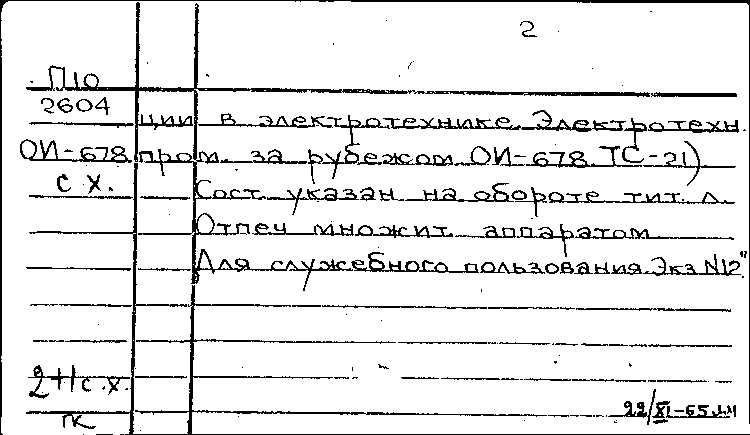 2
П10
2604
ции в электротехнике. Электротехн.
ОИ-678 пром. за рубежом ОИ-678 ТС-21)
с х.
Сост. указан на обороте тит. л.
Отпеч множит. аппаратом
Для служебного пользования. Экз N12"
2+1 с.х.
22/XI-65
гк